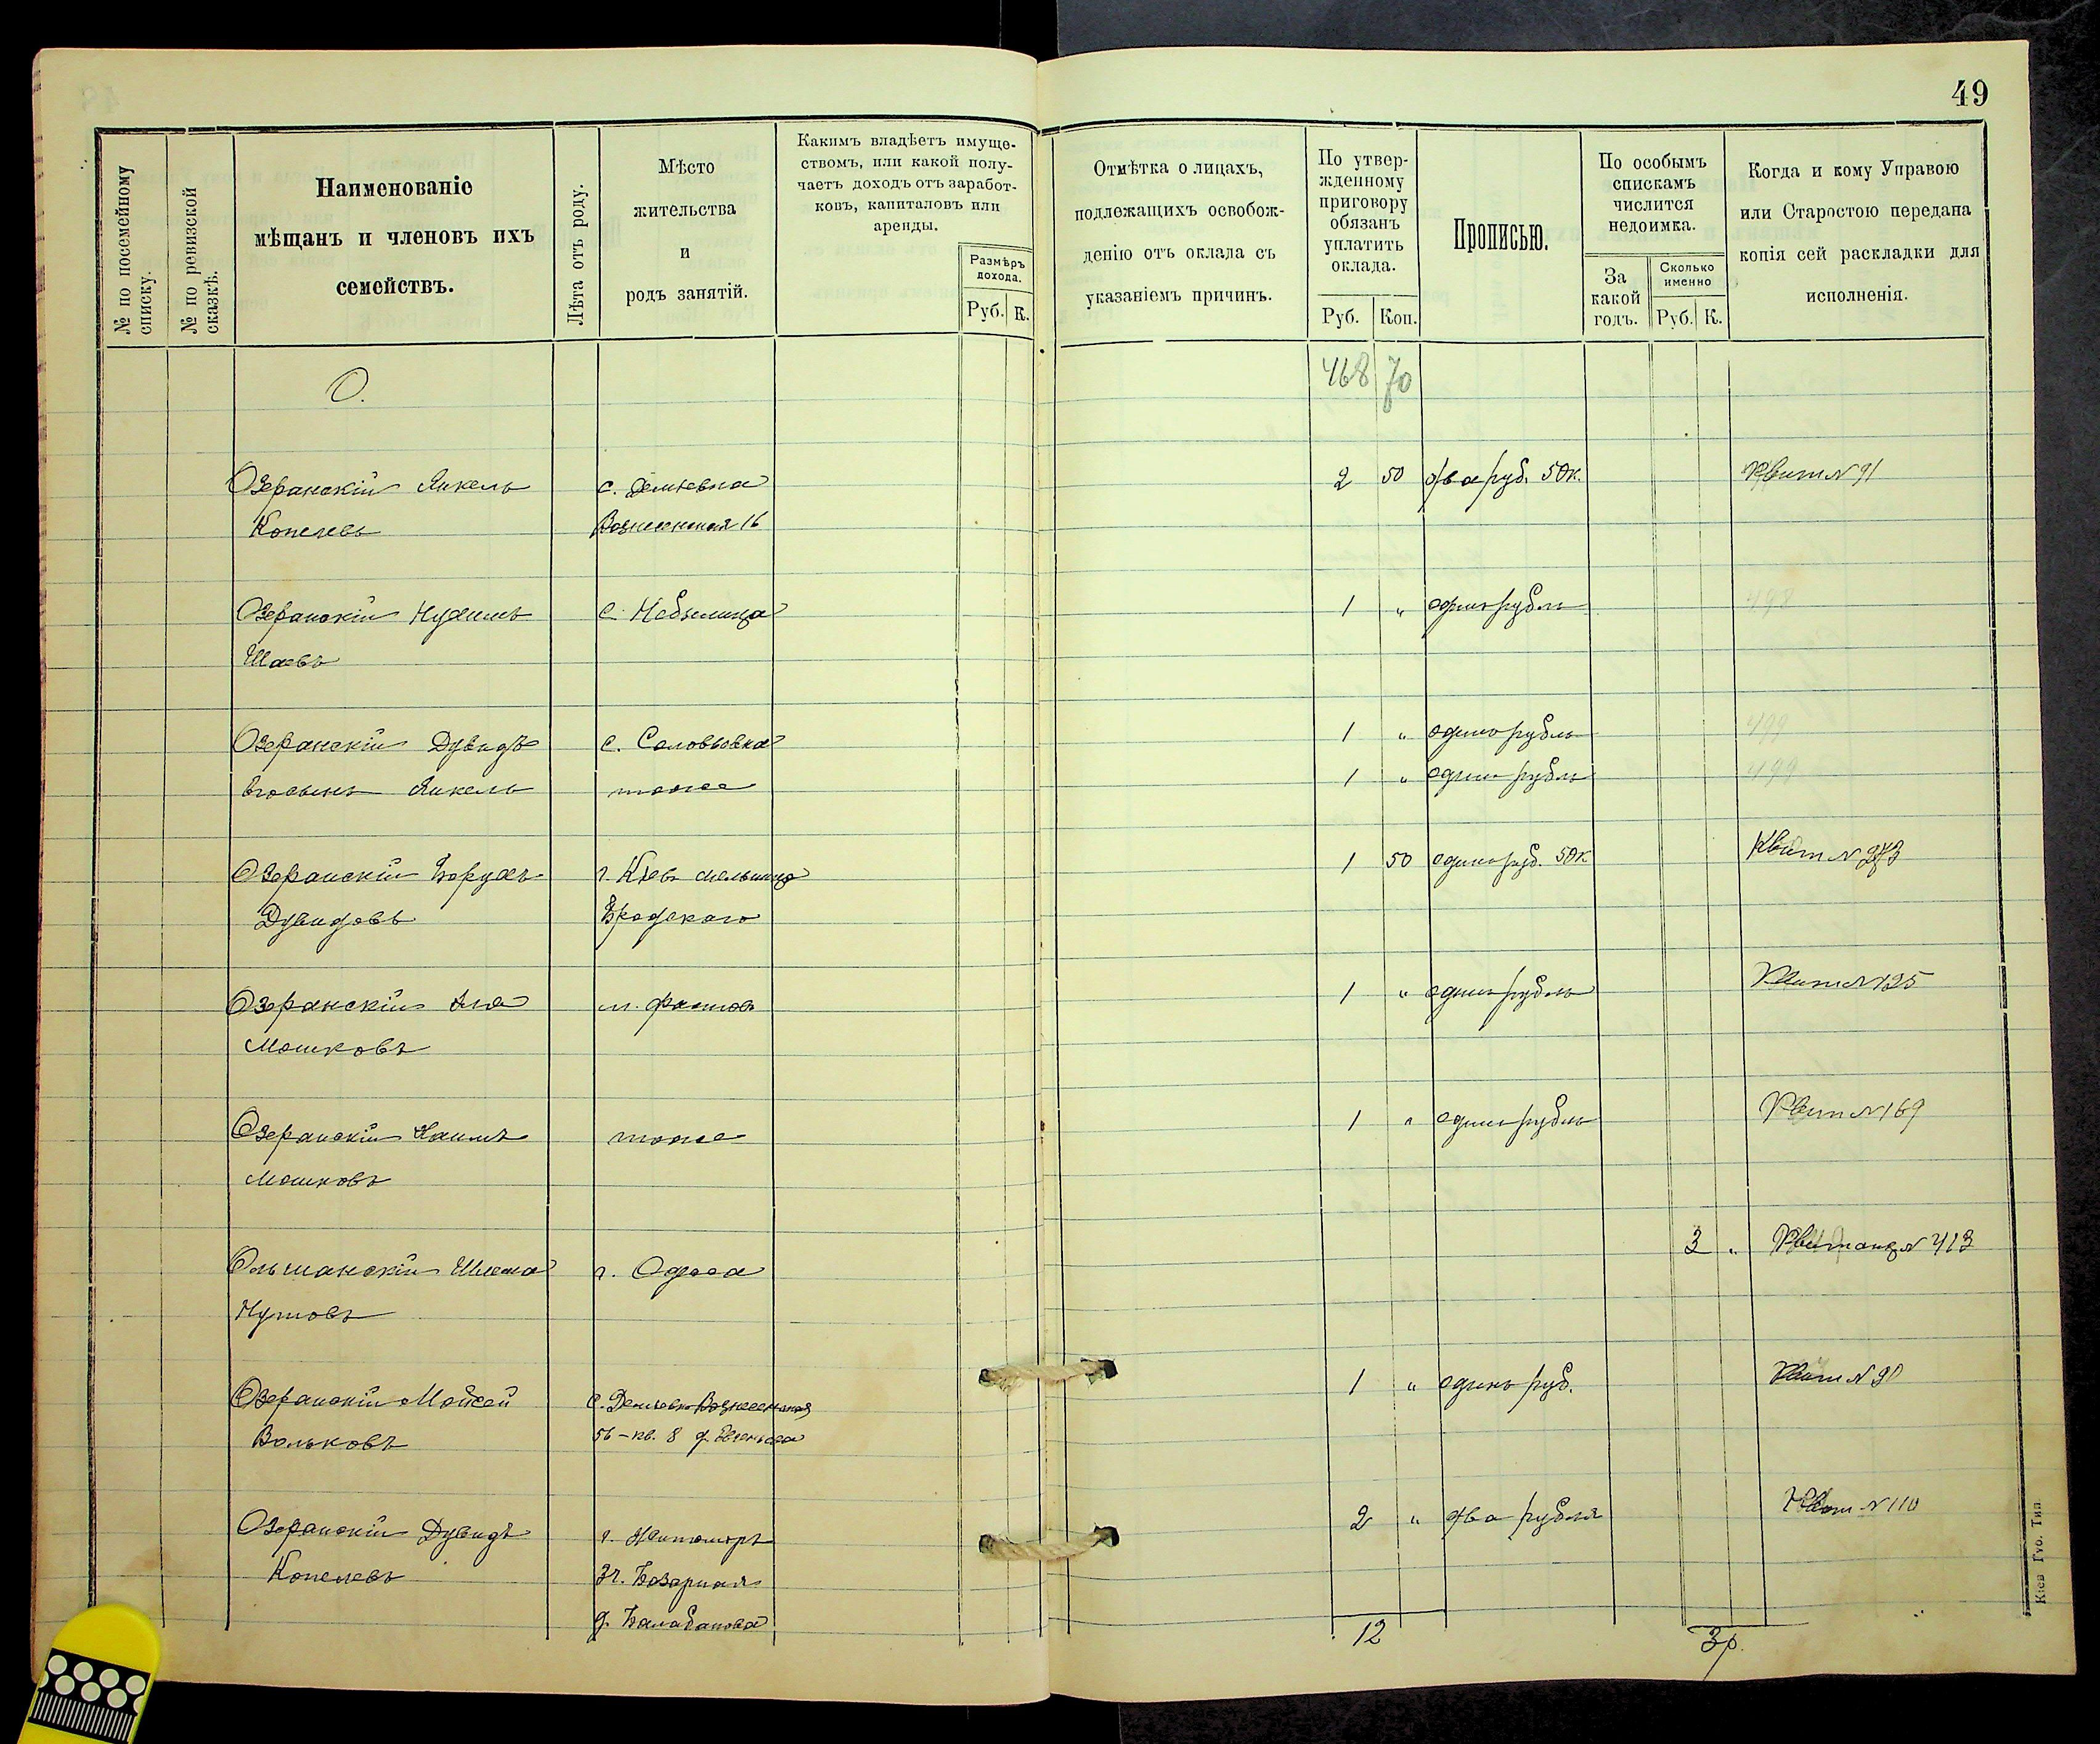 49
№ по посемейному списку.
№ по ревизской сказкѣ.
Наименованіе
мѣщанъ и членовъ ихъ
семействъ.
Лѣта отъ роду.
Мѣсто
жительства
и
родъ занятій.
Какимъ владѣетъ имуще-
ствомъ, или какой полу-
чаетъ доходъ отъ заработ-
ковъ, капиталовъ или
аренды.
Размѣръ
дохода.
Руб. К.
Отмѣтка о лицахъ,
подлежащихъ освобож-
денію отъ оклада съ
указаніемъ причинъ.
По утвер-
жденному
приговору
обязанъ
уплатить
оклада.
Руб. Коп.
Прописью.
По особымъ
спискамъ
числится
недоимка.
За
какой
годъ.
Сколько
именно
Руб. К.
Когда и кому Управою
или Старостою передана
копія сей раскладки для
исполненія.
О. 468 70
Озеранскій Янкель с. Деміевка 2 50 два руб. 50к. Квит N 91
Копелевъ Вознесенская 16
Озеранскій Нухимъ с. Небылица 1 " одинъ рубль 498
Шаевъ
Озеранскій Дувидъ с. Соловьовка 1 " одинъ рубль 499
его сынъ Янкель тоже 1 " одинъ рубль 499
Озеранскій Борухъ г. Кіевъ мельница 1 50 одинъ руб. 50к Квит N
Дувидовъ Бродскаго
Озеранскій м. Фастовъ 1 " одинъ рубль Квит N 125
Мошковъ
Озеранскій Хаимъ тоже 1 " одинъ рубль Квит N 169
Мошковъ
Ольшанскій Шлема г. Одесса 3 " Квитанц N 413
Нутовъ
Озеранскій Мойсей с. Деміевка Вознесенская 1 " одинъ руб. Квит N 90
Вольковъ 56 – кв. 8 д.
Озеранскій Дувидъ г. Житомиръ 2 " два рубля Квит N 110
Копелевъ Базарная
д. Балабанова
12 3р.
Кіев Губ. Тип.